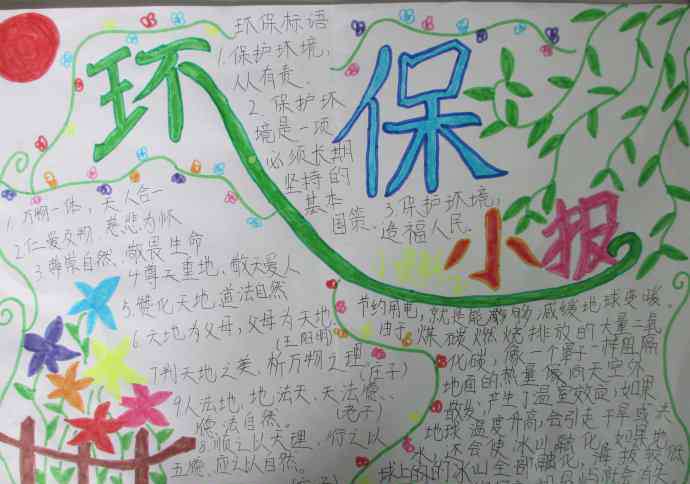 环保小报
环保标语
1.保护环境,
人人有责.
2.保护环
境是一项
必须长期
坚持的
基本
国策.
3.保护环境,
造福人民.
1.万物一体,天人合一
2.仁爱及物,慈悲为怀
3.尊崇自然,敬畏生命
4.尊天重地,敬天爱人
5.赞化天地,道法自然
6.天地为父母,父母为天地.
(王阳明)
7.判天地之美,析万物之理.
(庄子)
9.人法地,地法天,天法德、
德法自然.
(老子)
8.顺之以天理,行之以
五德,应之以自然.
节约用电,就是能够
减缓地球变暖。
由于煤碳燃烧排放的大量二氧
化碳,像一个罩子一样阻隔
地面的热量像向天空休
散发,产生了温室效应;如果
地球温度升高,会引走干旱或
水,还会使冰山融化,如果地
球上的的冰山全部融化,海拔较低